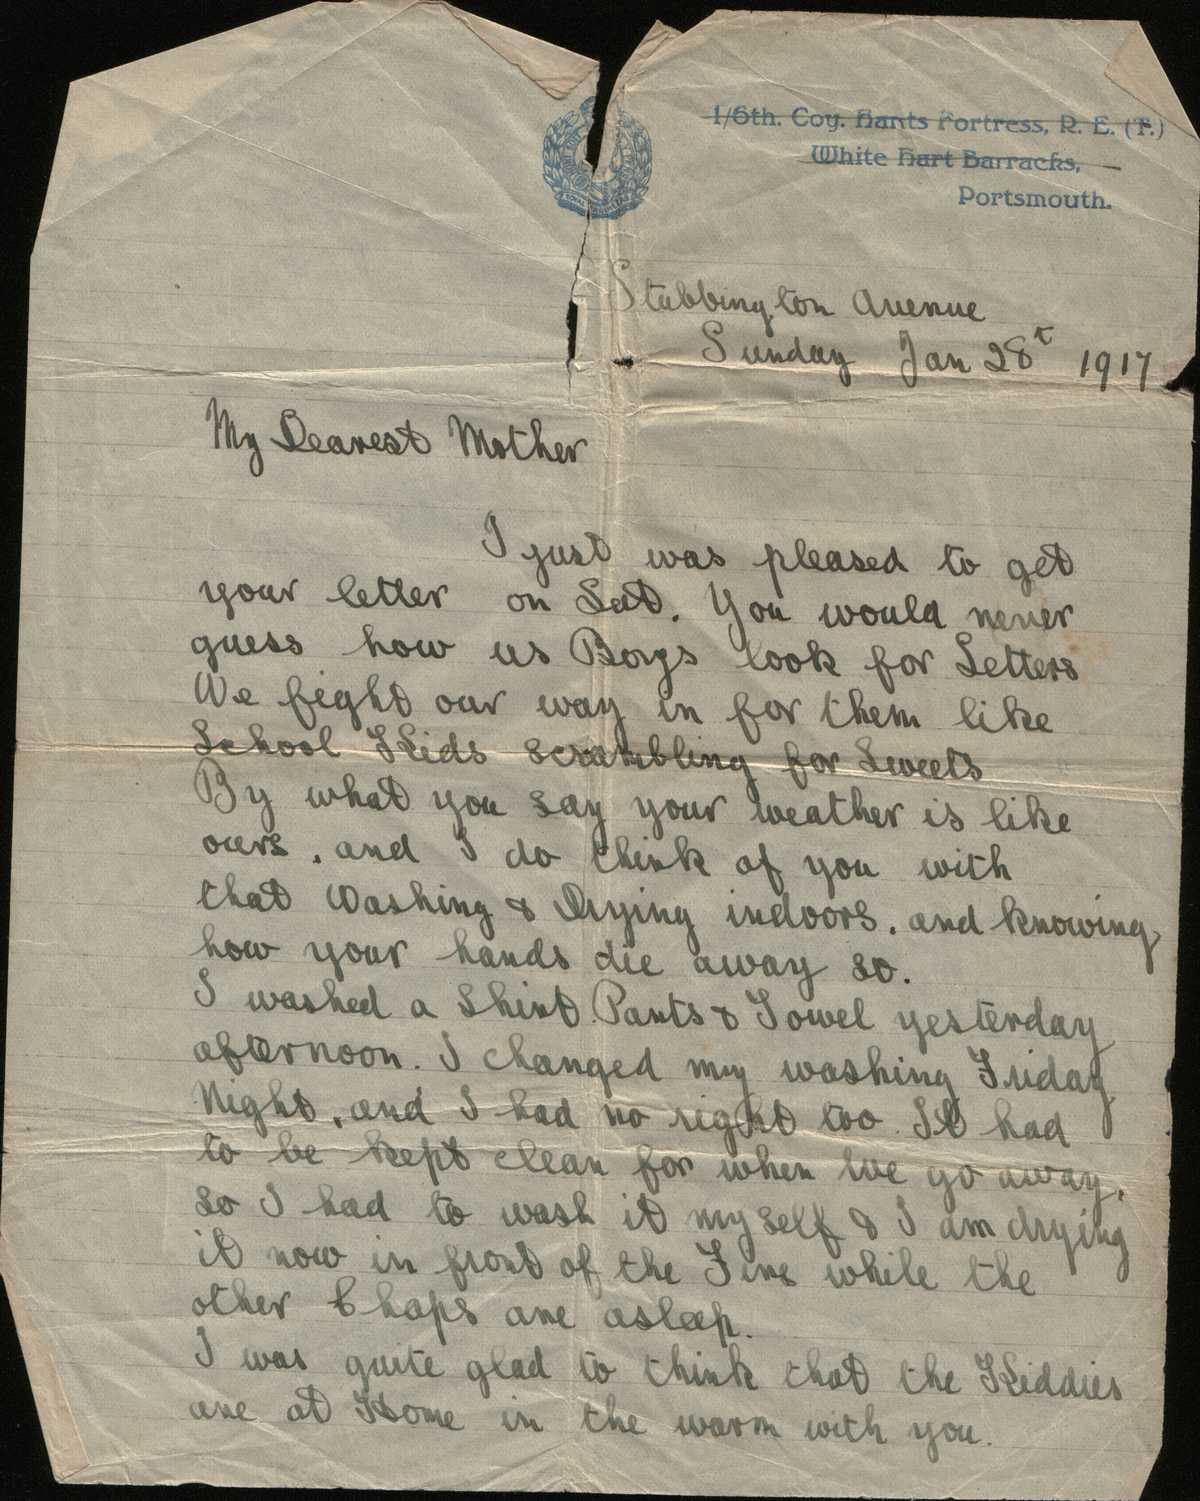 1/6th. Coy. Hants Fortress, R. E. (T.)
White Hart Barracks,
Portsmouth.
Stubbington Avenue
Sunday Jan 28t 1917
My Dearest Mother
I just was pleased to get
your letter on Sat. You would never
guess how us Boys look for Letters
We fight our way in for them like
School Kids scrambling for Sweets
By what you say your weather is like
ours, and I do think of you with
that Washing & Drying indoors, and knowing
how your hands die away so.
I washed a Shirt Pants & Towel yesterday
afternoon. I changed my washing Friday
Night, and I had no right too. It had
to be kept clean for when we go away,
so I had to wash it myself & I am drying
it now in front of the Fire while the
other Chaps are asleep.
I was quite glad to think that the Kiddies
are at Home in the warm with you.